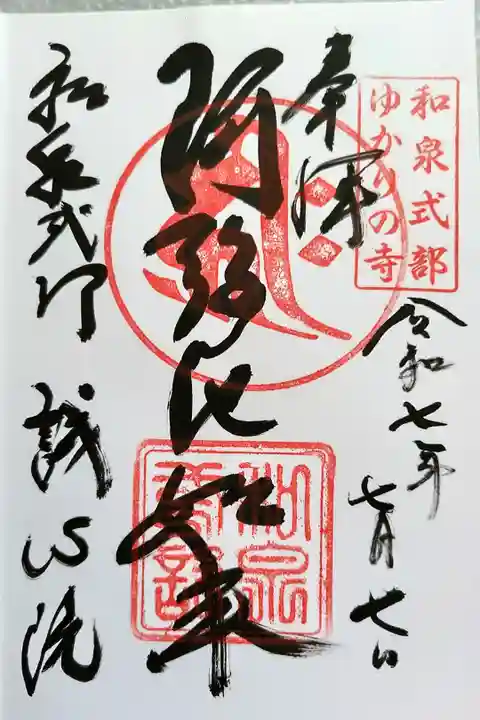 和泉式部
ゆかりの寺
奉拝
令和七年
七月七日
阿弥陀如来
和泉式部
和泉式部 誠心院